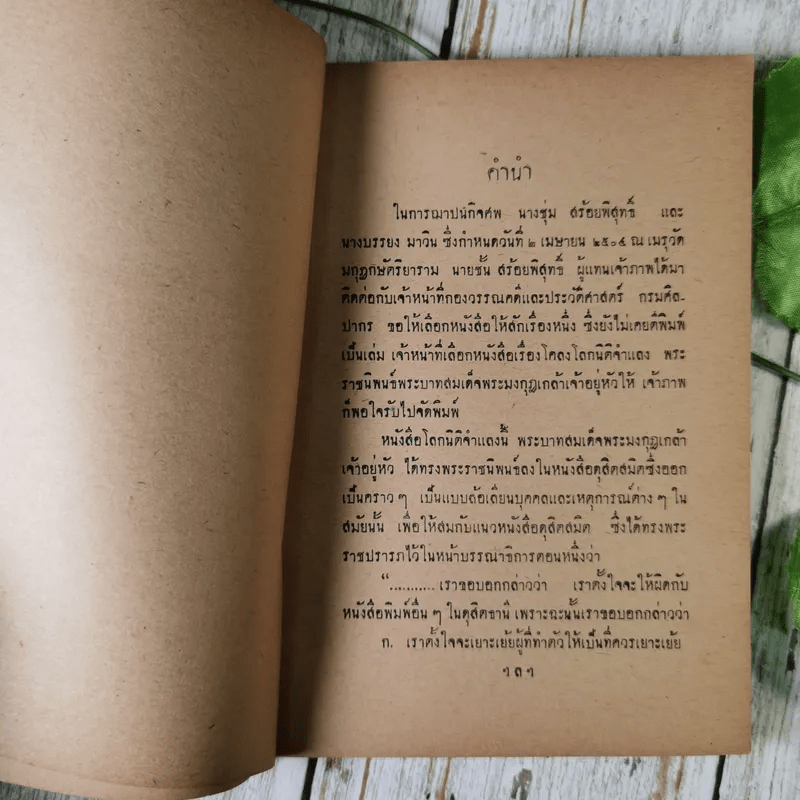 คำนำ
ในการฌาปนกิจศพ นางชุ่ม สร้อยพิสุทธิ์ และ
นางบรรยง มาวิน ซึ่งกำหนดวันที่ ๒ เมษายน ๒๕๐๕ ณ เมรุวัด
มกุฏกษัตริยาราม นายชั้น สร้อยพิสุทธิ์ ผู้แทนเจ้าภาพได้มา
ติดต่อกับเจ้าหน้าที่กองวรรณคดีและประวัติศาสตร์ กรมศิล-
ปากร ขอให้เลือกหนังสือให้สักเรื่องหนึ่ง ซึ่งยังไม่เคยตีพิมพ์
เป็นเล่ม เจ้าหน้าที่เลือกหนังสือเรื่องโคลงโลกนิติจำแลง พระ
ราชนิพนธ์พระบาทสมเด็จพระมงกุฎเกล้าเจ้าอยู่หัวให้ เจ้าภาพ
ก็พอใจรับไปจัดพิมพ์
หนังสือโลกนิติจำแลงนี้ พระบาทสมเด็จพระมงกุฎเกล้า
เจ้าอยู่หัว ได้ทรงพระราชนิพนธ์ลงในหนังสือดุสิตสมิตซึ่งออก
เป็นคราว ๆ เป็นแบบล้อเลียนบุคคลและเหตุการณ์ต่าง ๆ ใน
สมัยนั้น เพื่อให้สมกับแนวหนังสือดุสิตสมิต ซึ่งได้ทรงพระ
ราชปรารภไว้ในหน้าบรรณาธิการตอนหนึ่งว่า
“........... เราขอบอกกล่าวว่า เราตั้งใจจะให้ผิดกับ
หนังสือพิมพ์อื่น ๆ ในดุสิตธานี เพราะฉะนั้นเราขอบอกกล่าวว่า
ก. เราตั้งใจจะเยาะเย้ยผู้ที่ทำตัวให้เป็นที่ควรเยาะเย้ย
ฯ ล ฯ